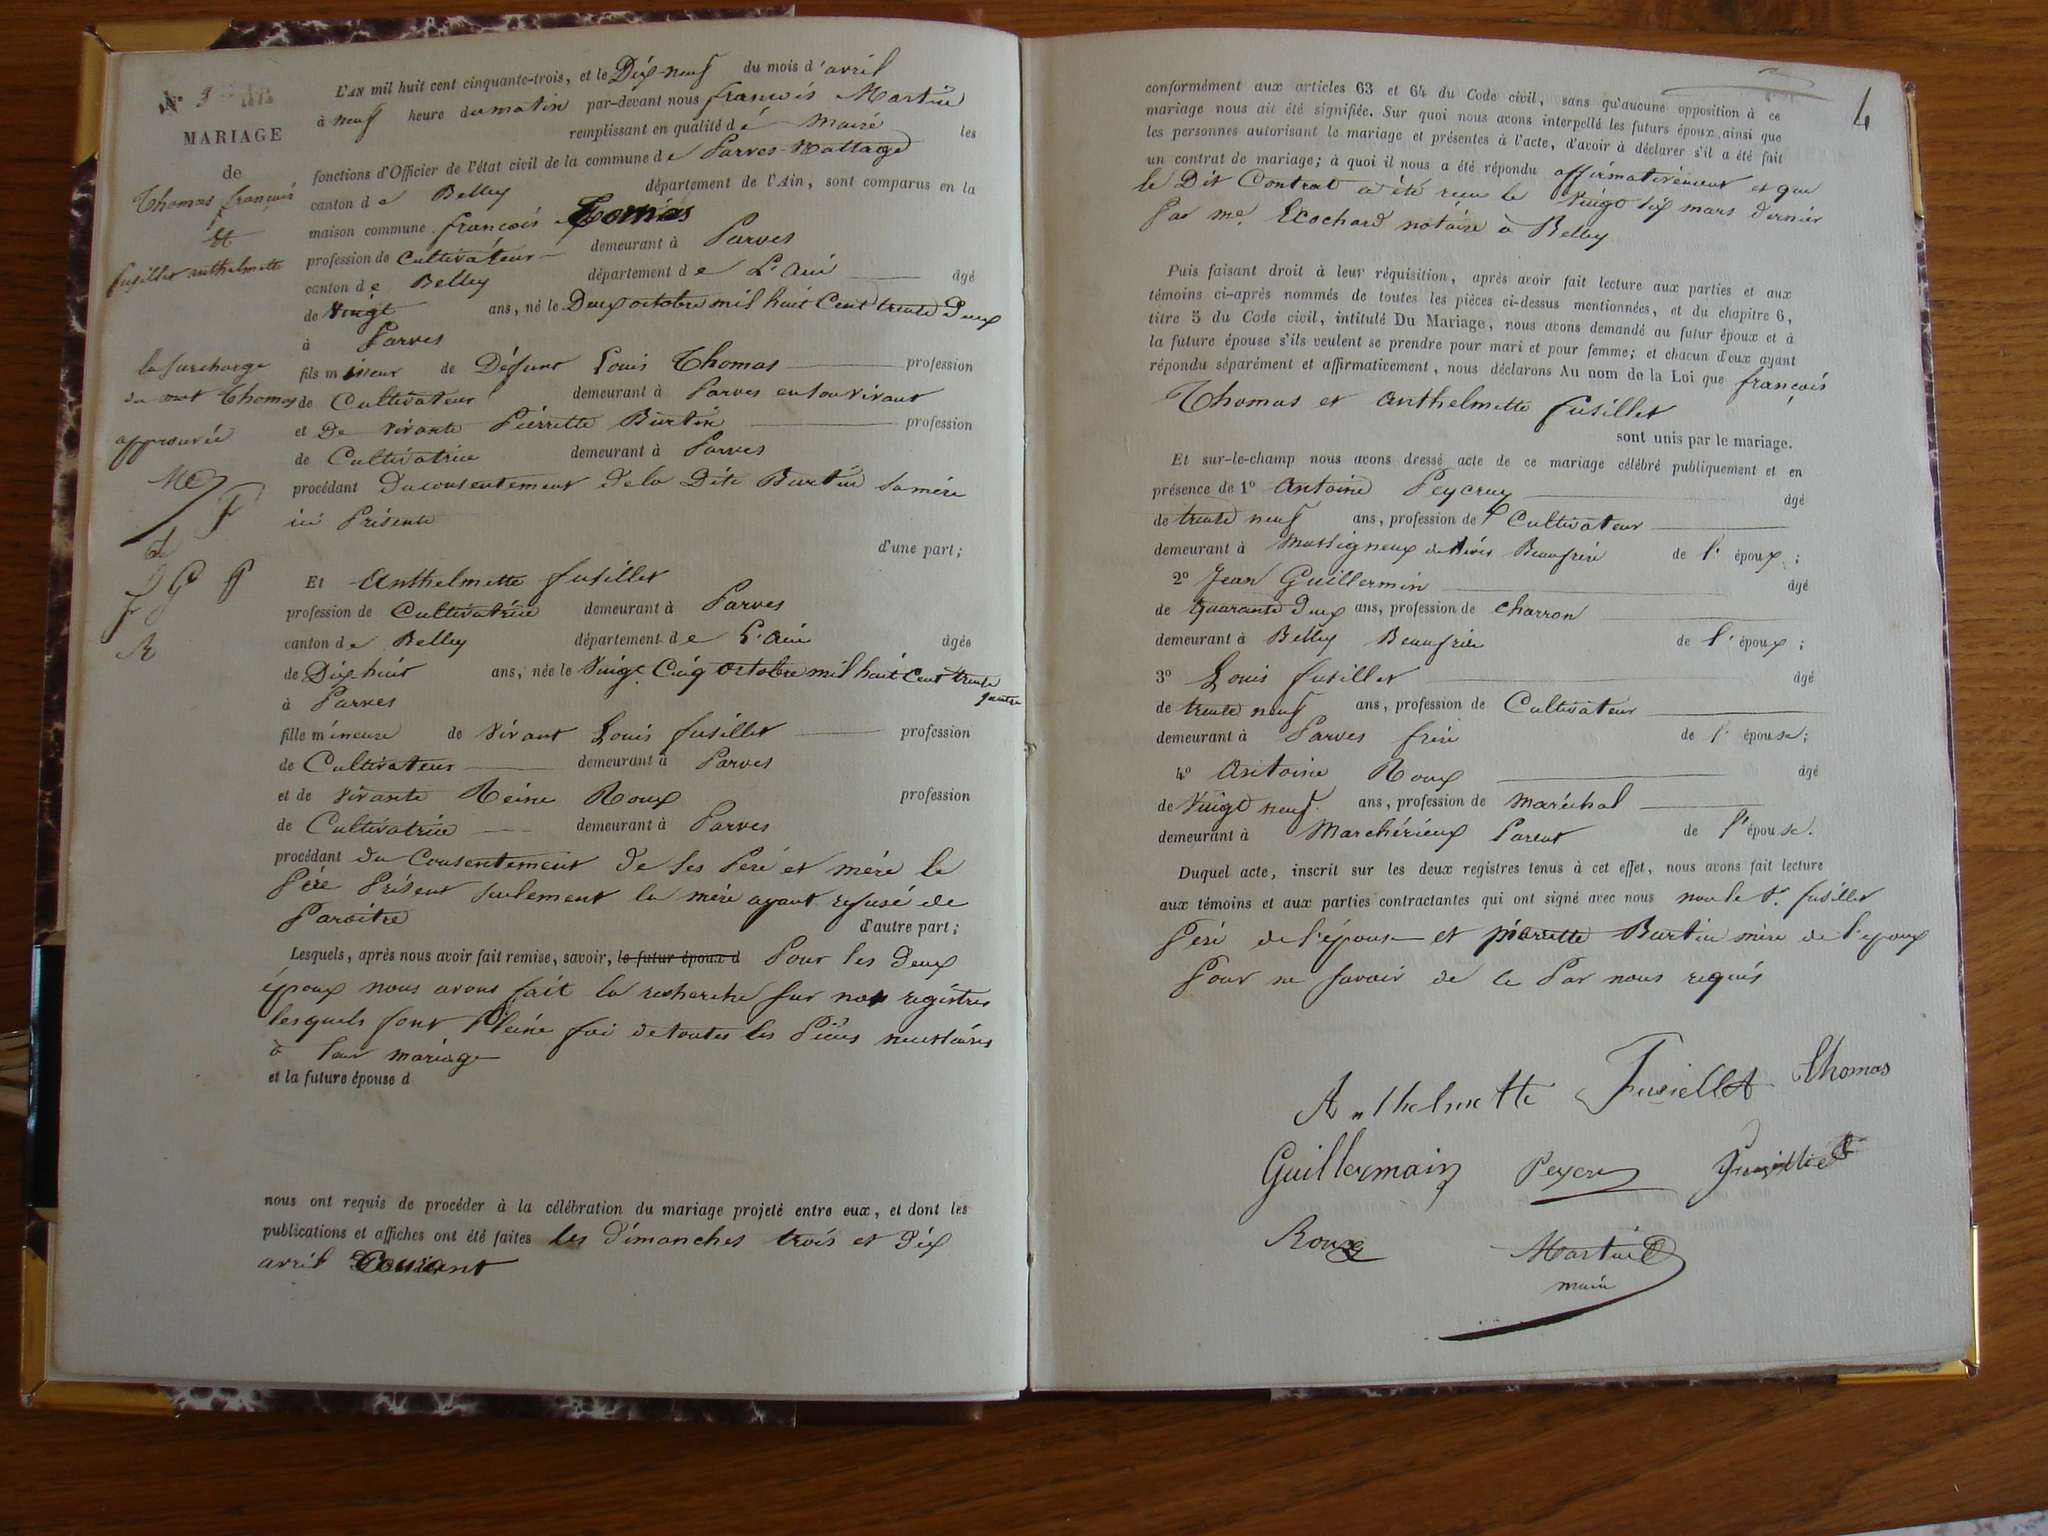 N° 3
MARIAGE
de
Thomas françois
et
fusillet anthelmette
la surcharge
du mot Thomas
approuvée
L'AN mil huit cent cinquante-trois, et le Dix-neuf du mois d'avril
à neuf heure du matin par-devant nous françois Martin
remplissant en qualité de Maire les
fonctions d'Officier de l'état civil de la commune de Parves-Nattage
canton de Belley département de l'Ain, sont comparus en la
maison commune françois Thomas
profession de Cultivateur demeurant à Parves
canton de Belley département de L'Ain âgé
de vingt ans, né le Deux octobre mil huit Cent trente Deux
à Parves
fils mineur de Défunt Louis Thomas profession
de Cultivateur demeurant à Parves en son vivant
et De vivante Pierrette Burtin profession
de Cultivatrice demeurant à Parves
procédant du consentement de la Dite Burtin sa mére
ici Présente
d'une part;
Et Anthelmette fusillet
profession de Cultivatrice demeurant à Parves
canton de Belley département de L'Ain âgés
de Dix huit ans, née le Vingt Cinq octobre mil huit Cent trente
quatre
à Parves
fille mineure de vivant Louis fusillet profession
de Cultivateur demeurant à Parves
et de vivante Reine Roux profession
de Cultivatrice demeurant à Parves
procédant du Consentement de ses Péré et mére le
Pére Présent seulement la mére ayant refusé de
Paroitre d'autre part;
Lesquels, après nous avoir fait remise, savoir, le futur époux d Pour les Deux
époux nous avons fait la recherche sur nos registres
lesquels font Pleine foi de toutes les Pièces necessaires
à leur mariage
et la future épouse d
nous ont requis de procéder à la célébration du mariage projeté entre eux, et dont les
publications et affiches ont été faites les Dimanches trois et Dix
avril Courant
4
conformément aux articles 63 et 64 du Code civil, sans qu'aucune opposition à ce
mariage nous ait été signifiée. Sur quoi nous avons interpellé les futurs époux ainsi que
les personnes autorisant le mariage et présentes à l'acte, d'avoir à déclarer s'il a été fait
un contrat de mariage; à quoi il nous a été répondu affirmativement et que
le Dit Contrat a été recu le Vingt six mars dernier
Par me. Ecochard notaire à Belley
Puis faisant droit à leur réquisition, après avoir fait lecture aux parties et aux
témoins ci-après nommés de toutes les pièces ci-dessus mentionnées, et du chapitre 6,
titre 5 du Code civil, intitulé Du Mariage, nous avons demandé au futur époux et à
la future épouse s'ils veulent se prendre pour mari et pour femme; et chacun d'eux ayant
répondu séparément et affirmativement, nous déclarons Au nom de la Loi que françois
Thomas et Anthelmette fusillet
sont unis par le mariage.
Et sur-le-champ nous avons dressé acte de ce mariage célébré publiquement et en
présence de 1° Antoine Peycruy âgé
de trente neuf ans, profession de Cultivateur
demeurant à Massigneux de Rives Beaufrére de l'époux;
2° Jean Guillermin âgé
de quarante Deux ans, profession de charron
demeurant à Belley Beaufrére de l'époux;
3° Louis fusillet âgé
de trente neuf ans, profession de Cultivateur
demeurant à Parves frére de l'épouse;
4° Antoine Roux âgé
de Vingt neuf ans, profession de maréchal
demeurant à Marchérieux Parent de l'épouse.
Duquel acte, inscrit sur les deux registres tenus à cet effet, nous avons fait lecture
aux témoins et aux parties contractantes qui ont signé avec nous non le Sr. fusillet
Péré de l'épouse et pierrette Burtin mére de l'époux
Pour ne savoir de ce Par nous requis
Anthelmette Fusiellet Thomas
Guillermain Peycru
Roux Martin
maire